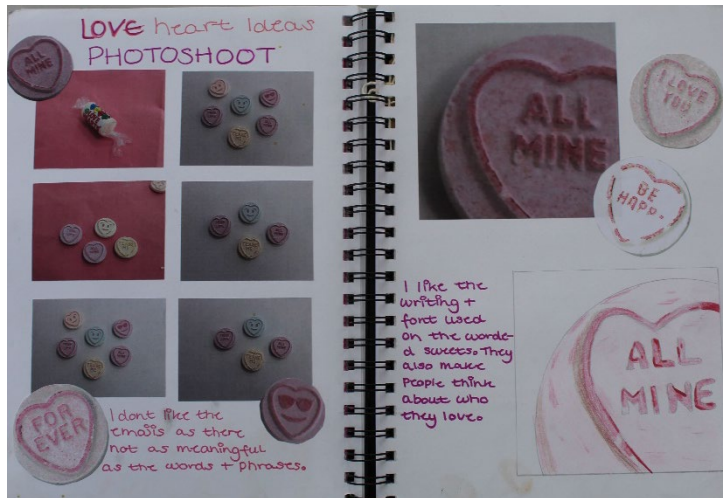 LOVE heart Ideas
PHOTOSHOOT
ALL
MINE
FOR
EVER
I dont like the
emojis as there
not as meaningful
as the words + phrases.
ALL
MINE
I LOVE
YOU
BE
HAPP.
I like the
writing +
font used
on the worde-
d sweets. They
also make
people think
about who
they love.
ALL
MINE